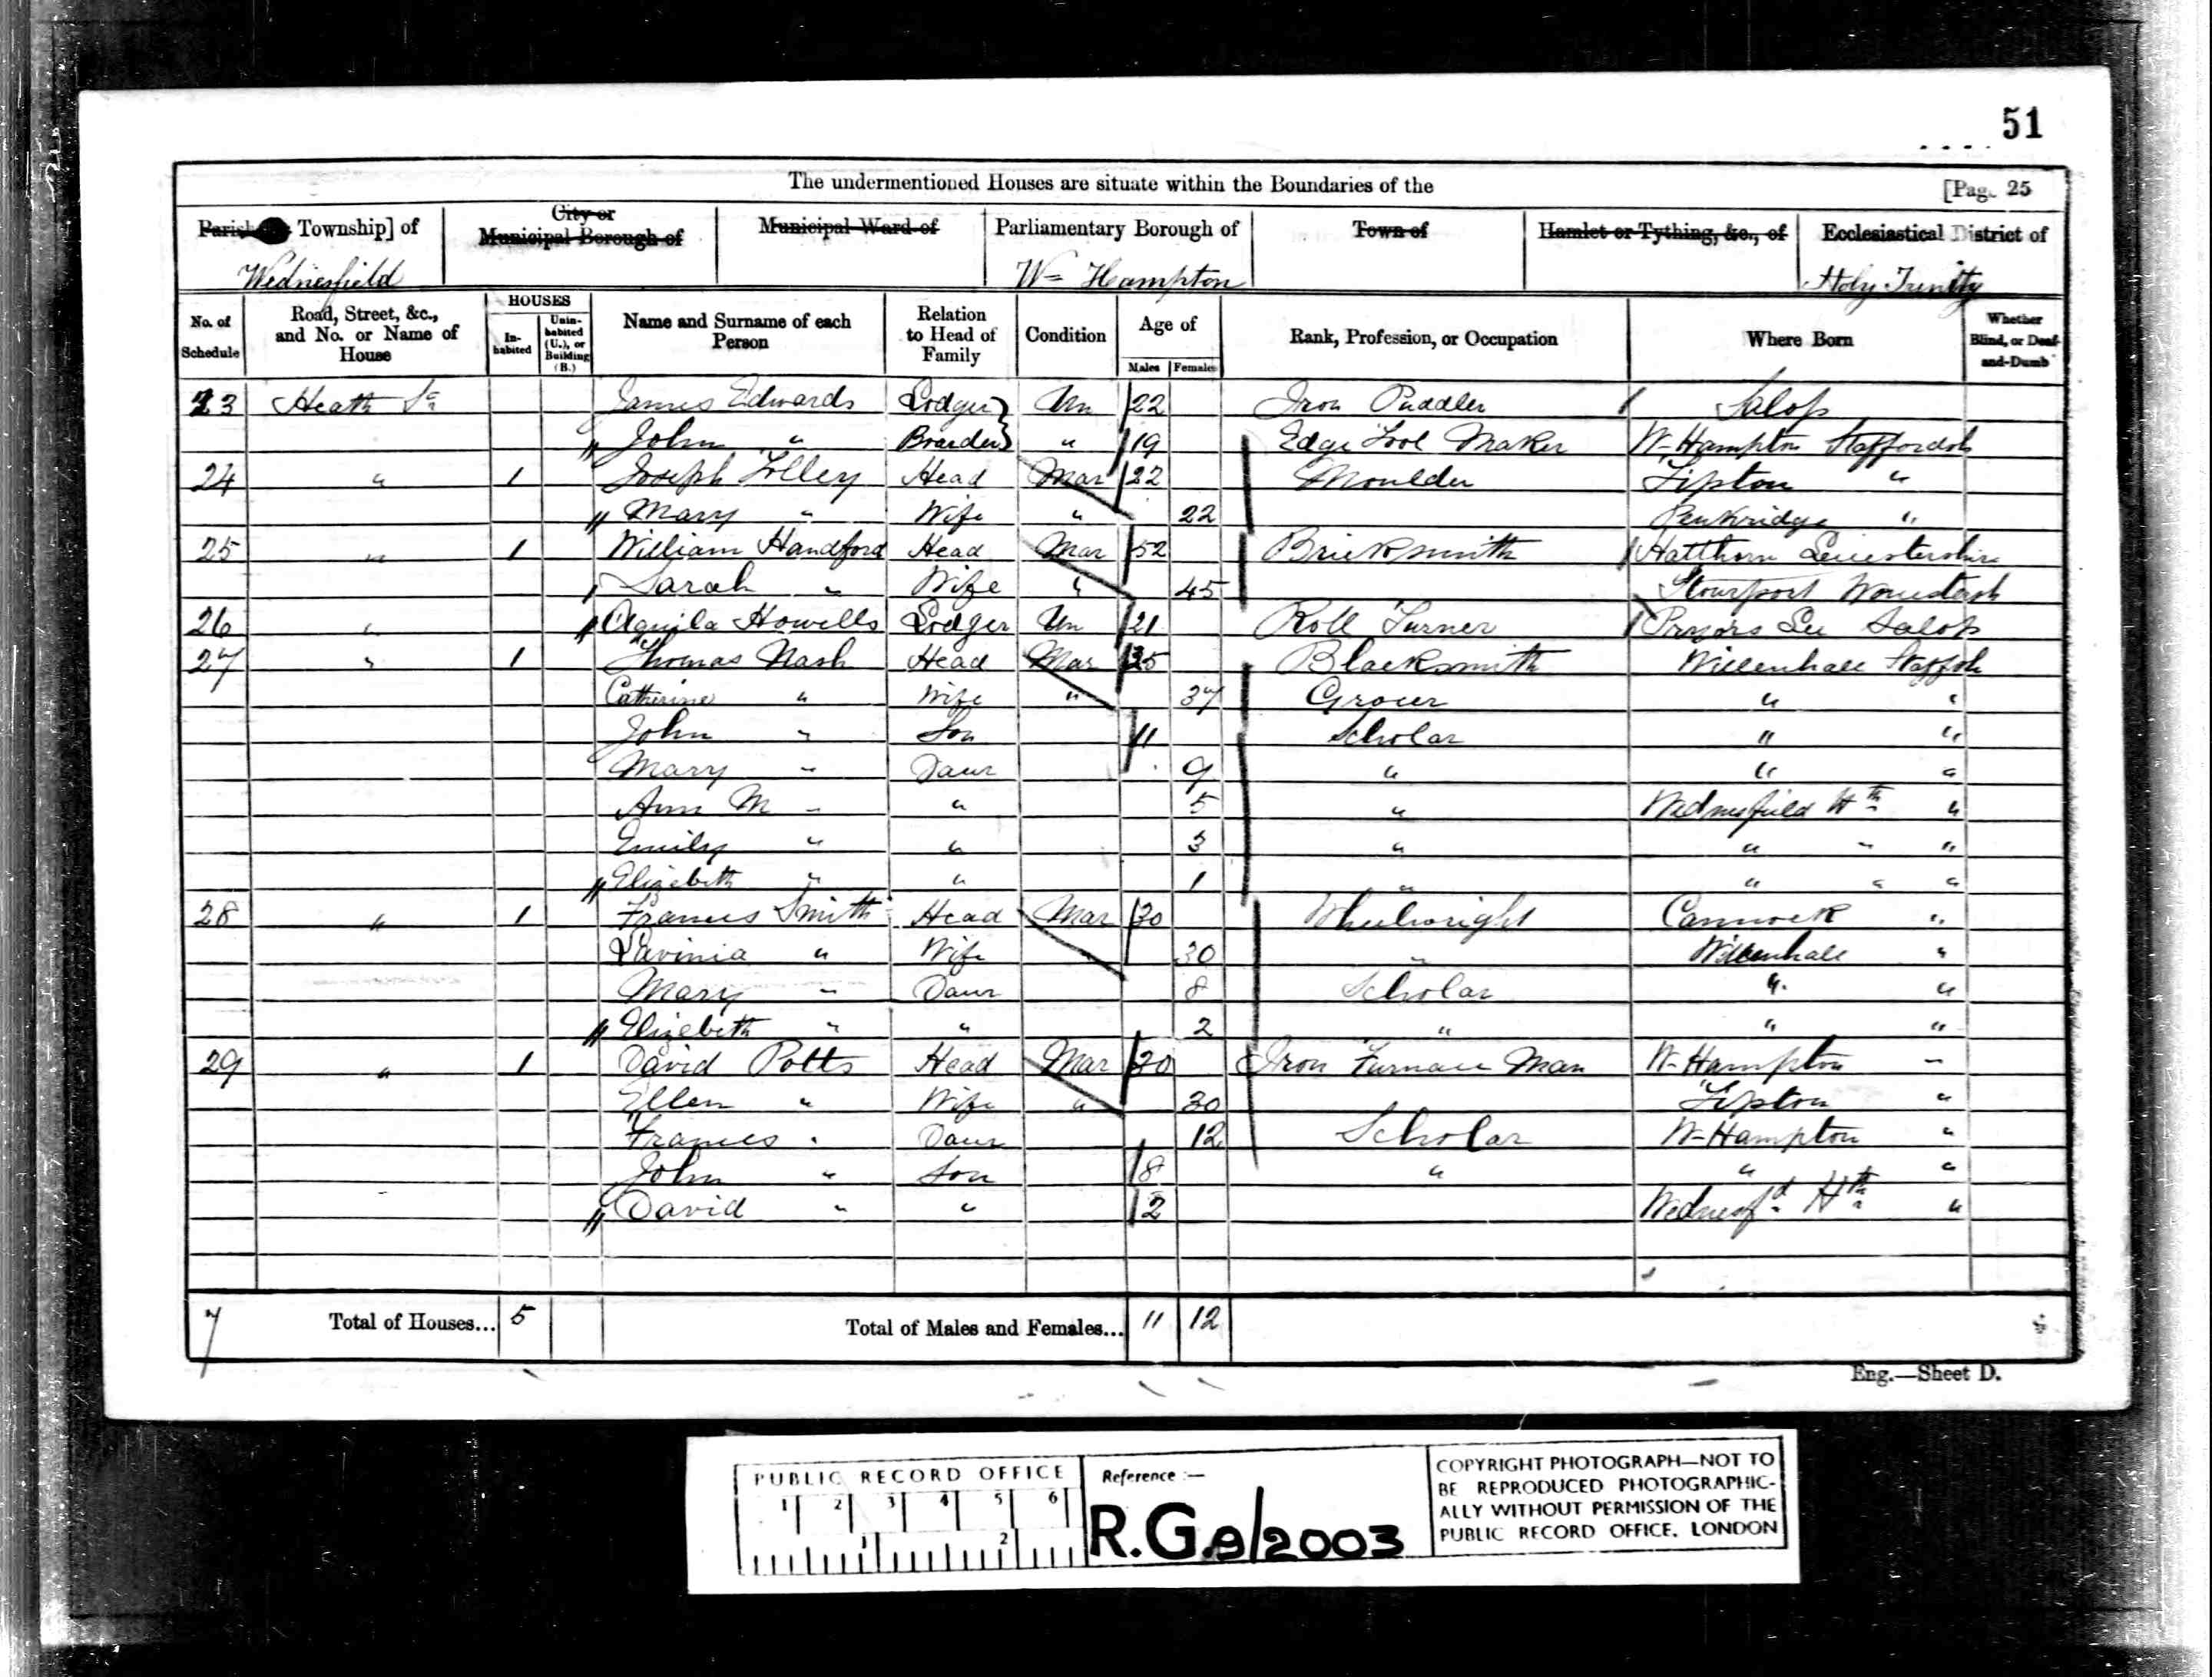 51
The undermentioned Houses are situate within the Boundaries of the
[Page 25
Parish Township] of
City or Municipal Borough of
Municipal Ward of
Parliamentary Borough of
Town of
Hamlet or Tything, &c., of
Ecclesiastical District of
Wednesfield
Wn Hampton
Holy Trinity
No. of Schedule
Road, Street, &c., and No. or Name of House
HOUSES
In-habited
Unin-habited (U.), or Building (B.)
Name and Surname of each Person
Relation to Head of Family
Condition
Age of
Males
Females
Rank, Profession, or Occupation
Where Born
Whether Blind, or Deaf-and-Dumb
23 Heath St James Edwards Lodger Un 22 Iron Puddler Salop
John " Boarder " 19 Edge Tool Maker W-Hampton Staffordsh
24 " 1 Joseph Tolley Head Mar 22 Moulder Tipton "
Mary " Wife " 22 Penkridge "
25 " 1 William Handford Head Mar 52 Bricksmith Hatthern Leicestershire
Sarah " Wife " 45 Stourport
26 " Aquila Howells Lodger Un 21 Roll Turner Pryors Lee Salop
27 " 1 Thomas Nash Head Mar 35 Blacksmith Willenhall Staffsh
Catherine " Wife " 37 Grocer " "
John " Son 11 Scholar " "
Mary " Daur 9 " " "
Ann M " " 5 " Wednesfield Hth "
Emily " " 3 " " " "
Elizebeth " " 1 " " " "
28 " 1 Frances Smith Head Mar 30 Wheelwright Cannock "
Lavinia " Wife 30 " Willenhall "
Mary " Daur 8 Scholar " "
Elizebeth " " 2 " " "
29 " 1 David Potts Head Mar 30 Iron Furnace Man W-Hampton "
Ellen " Wife " 30 Tipton "
Frances " Daur 12 Scholar W-Hampton "
John " Son 8 " " "
David " " 2 Wednesfd Hth "
7 Total of Houses... 5 Total of Males and Females... 11 12
Eng.—Sheet D.
PUBLIC RECORD OFFICE
1 2 3 4 5 6
1 2
Reference :—
R.G.9/2003
COPYRIGHT PHOTOGRAPH—NOT TO
BE REPRODUCED PHOTOGRAPHIC-
ALLY WITHOUT PERMISSION OF THE
PUBLIC RECORD OFFICE, LONDON